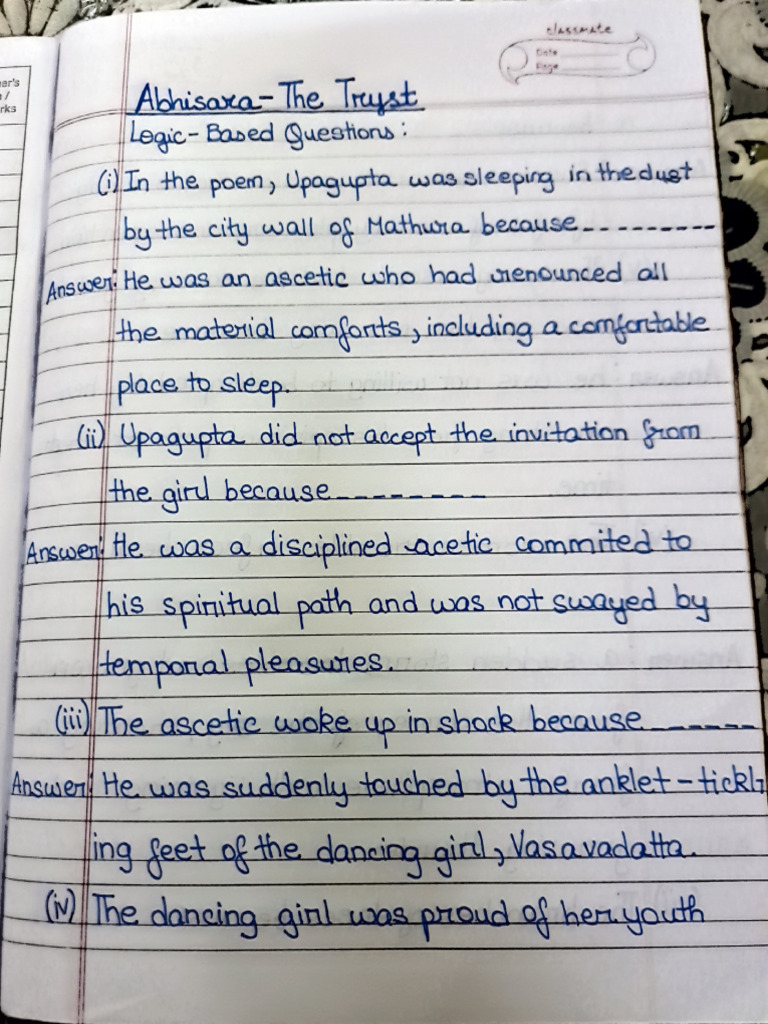 ear's
/
rks
classmate
Date
Page
Abhisara - The Tryst
Logic - Based Questions :
(i) In the poem, Upagupta was sleeping in the dust
by the city wall of Mathura because ---------
Answer: He was an ascetic who had renounced all
the material comforts, including a comfortable
place to sleep.
(ii) Upagupta did not accept the invitation from
the girl because --------
Answer: He was a disciplined acetic commited to
his spiritual path and was not swayed by
temporal pleasures.
(iii) The ascetic woke up in shock because ------
Answer: He was suddenly touched by the anklet - tickl
ing feet of the dancing girl, Vasavadatta.
(iv) The dancing girl was proud of her youth